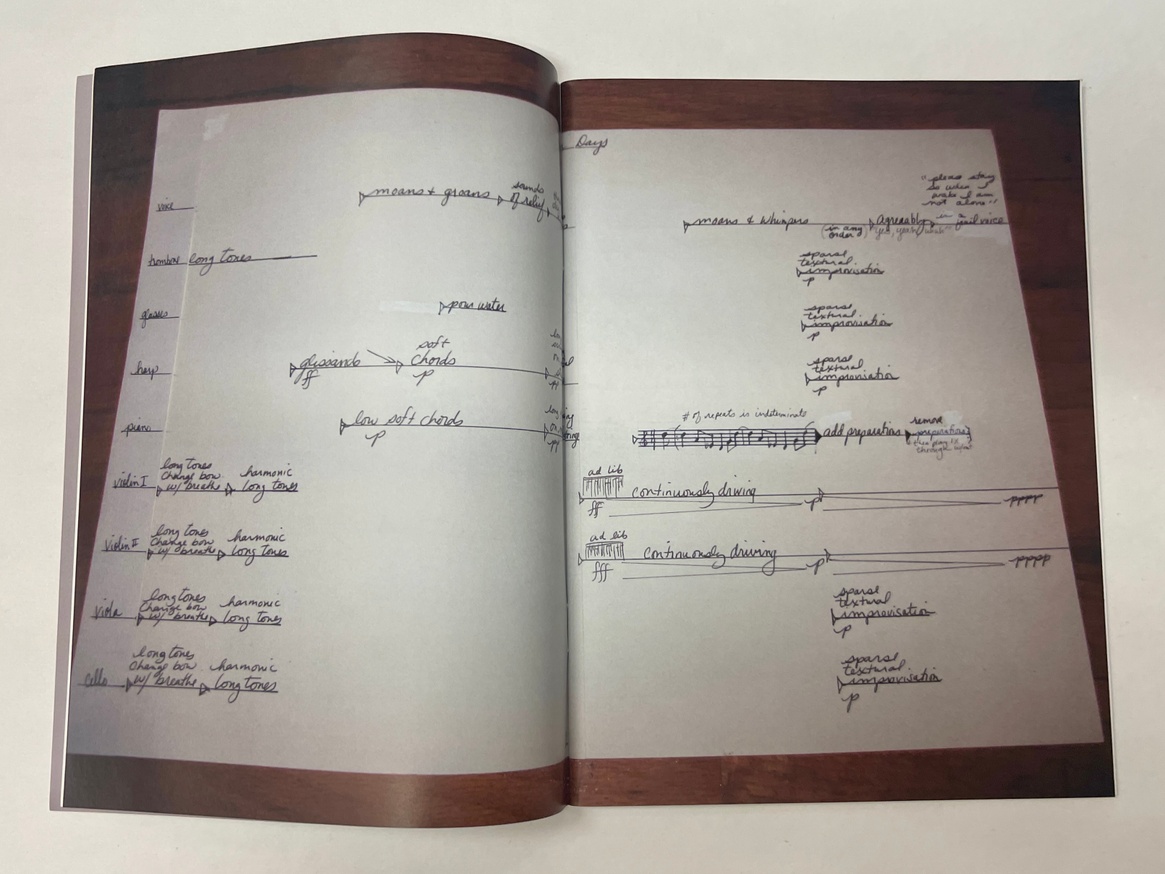 Days
voice
moans + groans
sounds
of relief
trombone
long tones
glasses
pour water
harp
glissando
ff
soft
chords
p
piano
low soft chords
p
violin I
long tones
Change bow
w/ breathe
harmonic
long tones
violin II
long tones
Change bow
w/ breathe
harmonic
long tones
viola
long tones
Change bow
w/ breathe
harmonic
long tones
cello
long tones
Change bow
w/ breathe
harmonic
long tones
moans & whimpers
(in any
order)
agreeably
"yes, yeah,
"please stay
so when I
wake I am
not alone"
in a
voice
sparse
textural
improvisation
p
sparse
textural
improvisation
p
sparse
textural
improvisation
p
# of repeats is indeterminate
add preparations
remove
preparations
ad lib
ff
continuously driving
p
pppp
ad lib
fff
continuously driving
p
pppp
sparse
textural
improvisation
p
sparse
textural
improvisation
p